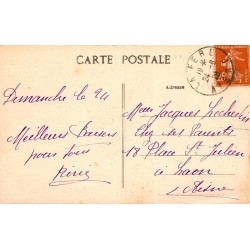 CARTE POSTALE
ADRESSE
Dimanche le 24
Meilleurs Baisers
pour tous
Jacques
Chez ses Parents
18 Place St Julien
à Laon
Aisne